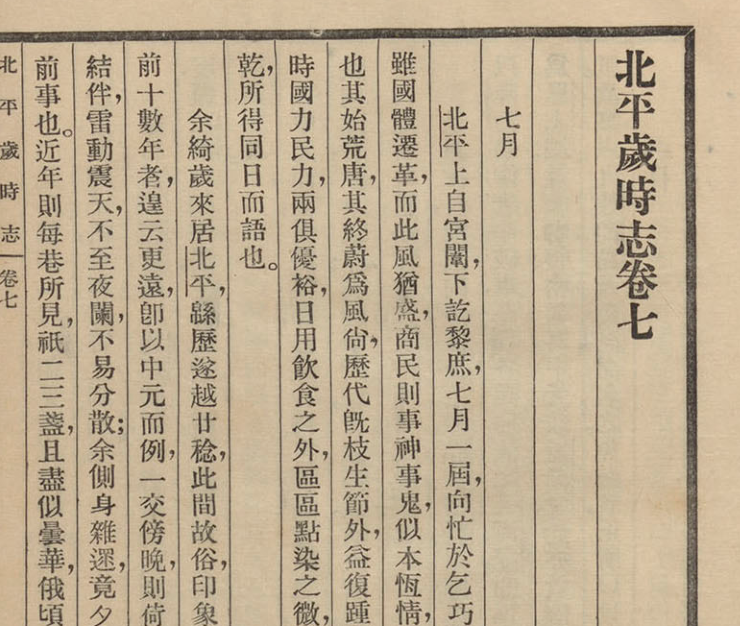 北平歲時志卷七
七月
北平上自宮闈，下訖黎庶，七月一屆，向忙於乞巧
雖國體遷革，而此風猶盛，商民則事神事鬼，似本恆情，
也其始荒唐，其終蔚爲風尙，歷代旣枝生節外，益復踵
時國力民力，兩俱優裕，日用飮食之外，區區點染之微，
乾，所得同日而語也。
余綺歲來居北平，緜歷遂越廿稔，此間故俗，印象
前十數年者，遑云更遠，卽以中元而例，一交傍晚，則荷
結伴，雷動震天，不至夜闌，不易分散；余側身雜遝，竟夕
前事也。近年則每巷所見，祇二三盞，且盡似曇華，俄頃
北平歲時志 卷七